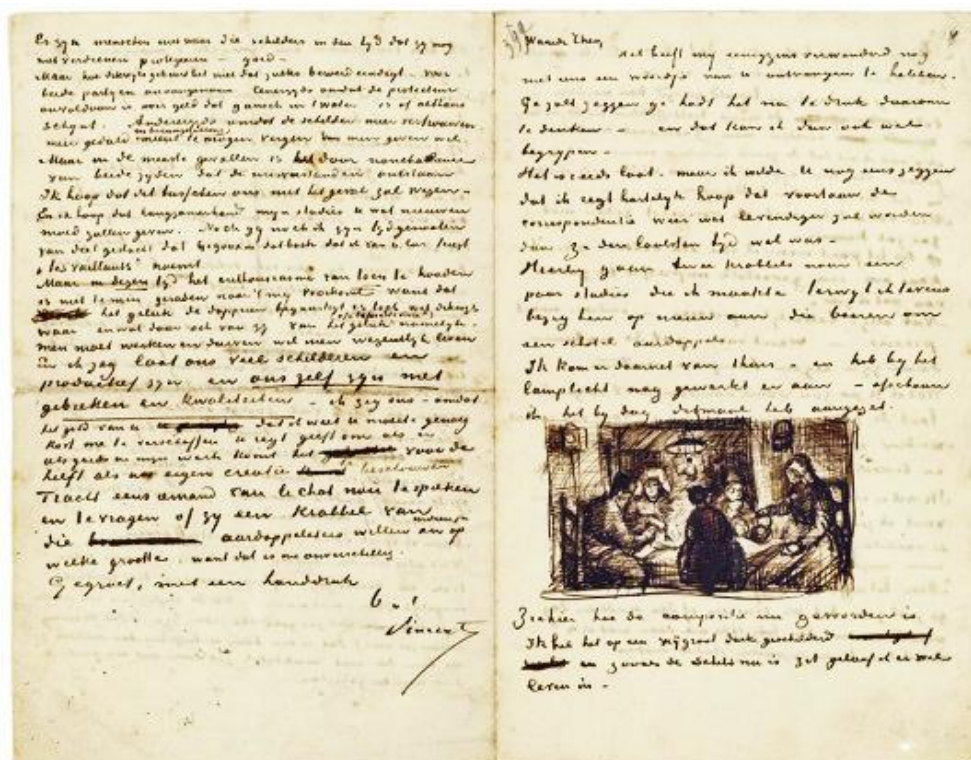 Er zijn menschen met waar die schilders in den tijd dat zy nog
niet verdienen protegeeren – goed –
Maar hoe dikwijls gebeurt het niet dat zulks beroerd eindigt – voor
beide partyen onaangenaam Eenerzyds omdat de protecteur
onvoldaan is over geld dat gansch in 't water is of althans
schynt. Anderzyds omdat de schilder
meer geduld en belangstelling meent te mogen vergen van men geven wil.
Maar in de meeste gevallen is het door nonchalance
van beide zyden dat de misverstanden ontstaan
Ik hoop dat dit tusschen ons niet het geval zal wezen –
En ik hoop dat langzamerhand mijn studies U wat nieuwen
moed zullen geven. Noch gy noch ik zyn tydgenooten
van dat geslacht dat Gigoux in dat boek dat ik van U las
"les vaillants" noemt
Maar in dezen tyd het enthousiasme van toen te houden
is niet te min geraden naar 't my voorkomt want dat
het geluk de dapperen begunstigt is toch wel dikwyls
waar en wat daar ook van zy van het geluk namelyk –
men moet werken en durven wil men wezentlyk leven
En ik zeg laat ons veel schilderen en
productief zyn en ons zelf zyn met
gebreken en kwaliteiten – ik zeg ons – omdat
het geld van U dat ik weet U moeite genoeg
kost me te verschaffen U regt geeft om als er
iets goeds in myn werk komt het voor de
helft als uw eigen creatie te beschouwen
Tracht eens iemand van le chat noir te spreken
en te vragen of zy een krabbel van
die aardappeleters willen en zoo ja op
welke grootte. want dat is me onverschillig.
Gegroet, met een handdruk
t. à t.
Vincent
Waarde Theo,
Het heeft my eenigzins verwonderd nog
niet eens een woordje van U ontvangen te hebben.
Ge zult zeggen ge hadt het na te druk daaraan
te denken – en dat kan ik dan ook wel
begrypen –
Het is reeds laat. maar ik wilde U nog eens zeggen
dat ik regt hartelyk hoop dat voortaan de
correspondentie weer wat levendiger zal worden
dan ze den laatsten tyd wel was –
Hierby gaan twee krabbels naar een
paar studies die ik maakte terwyl ik tevens
bezig ben op nieuw aan die boeren om
een schotel aardappels
Ik kom er daarnet van thuis – en heb by het
lamplicht nog gewerkt er aan – ofschoon
ik het by dag ditmaal heb aangezet.
Ziehier hoe de compositie nu geworden is
Ik heb het op een vry groot doek geschilderd
en zooals de schets nu is zit geloof ik er wel
leven in –